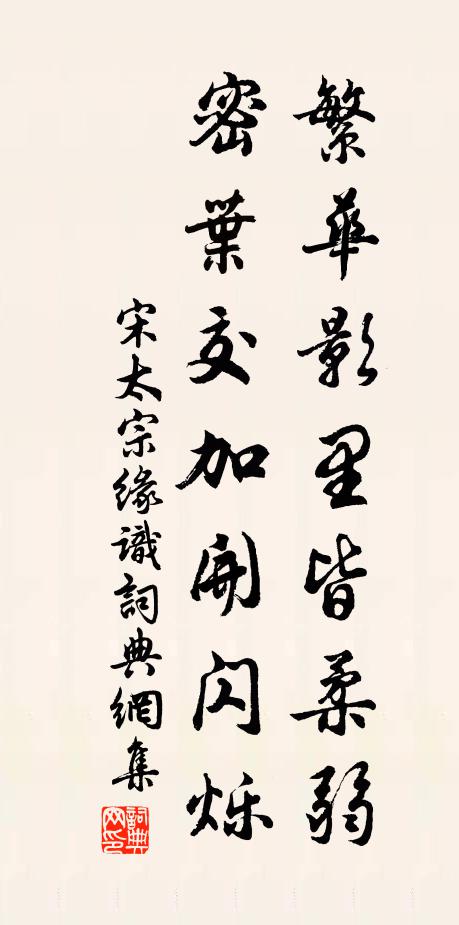 繁華影里皆柔弱
密葉交加開闪烁
宋太宗緣識詞典網集
詞典網印